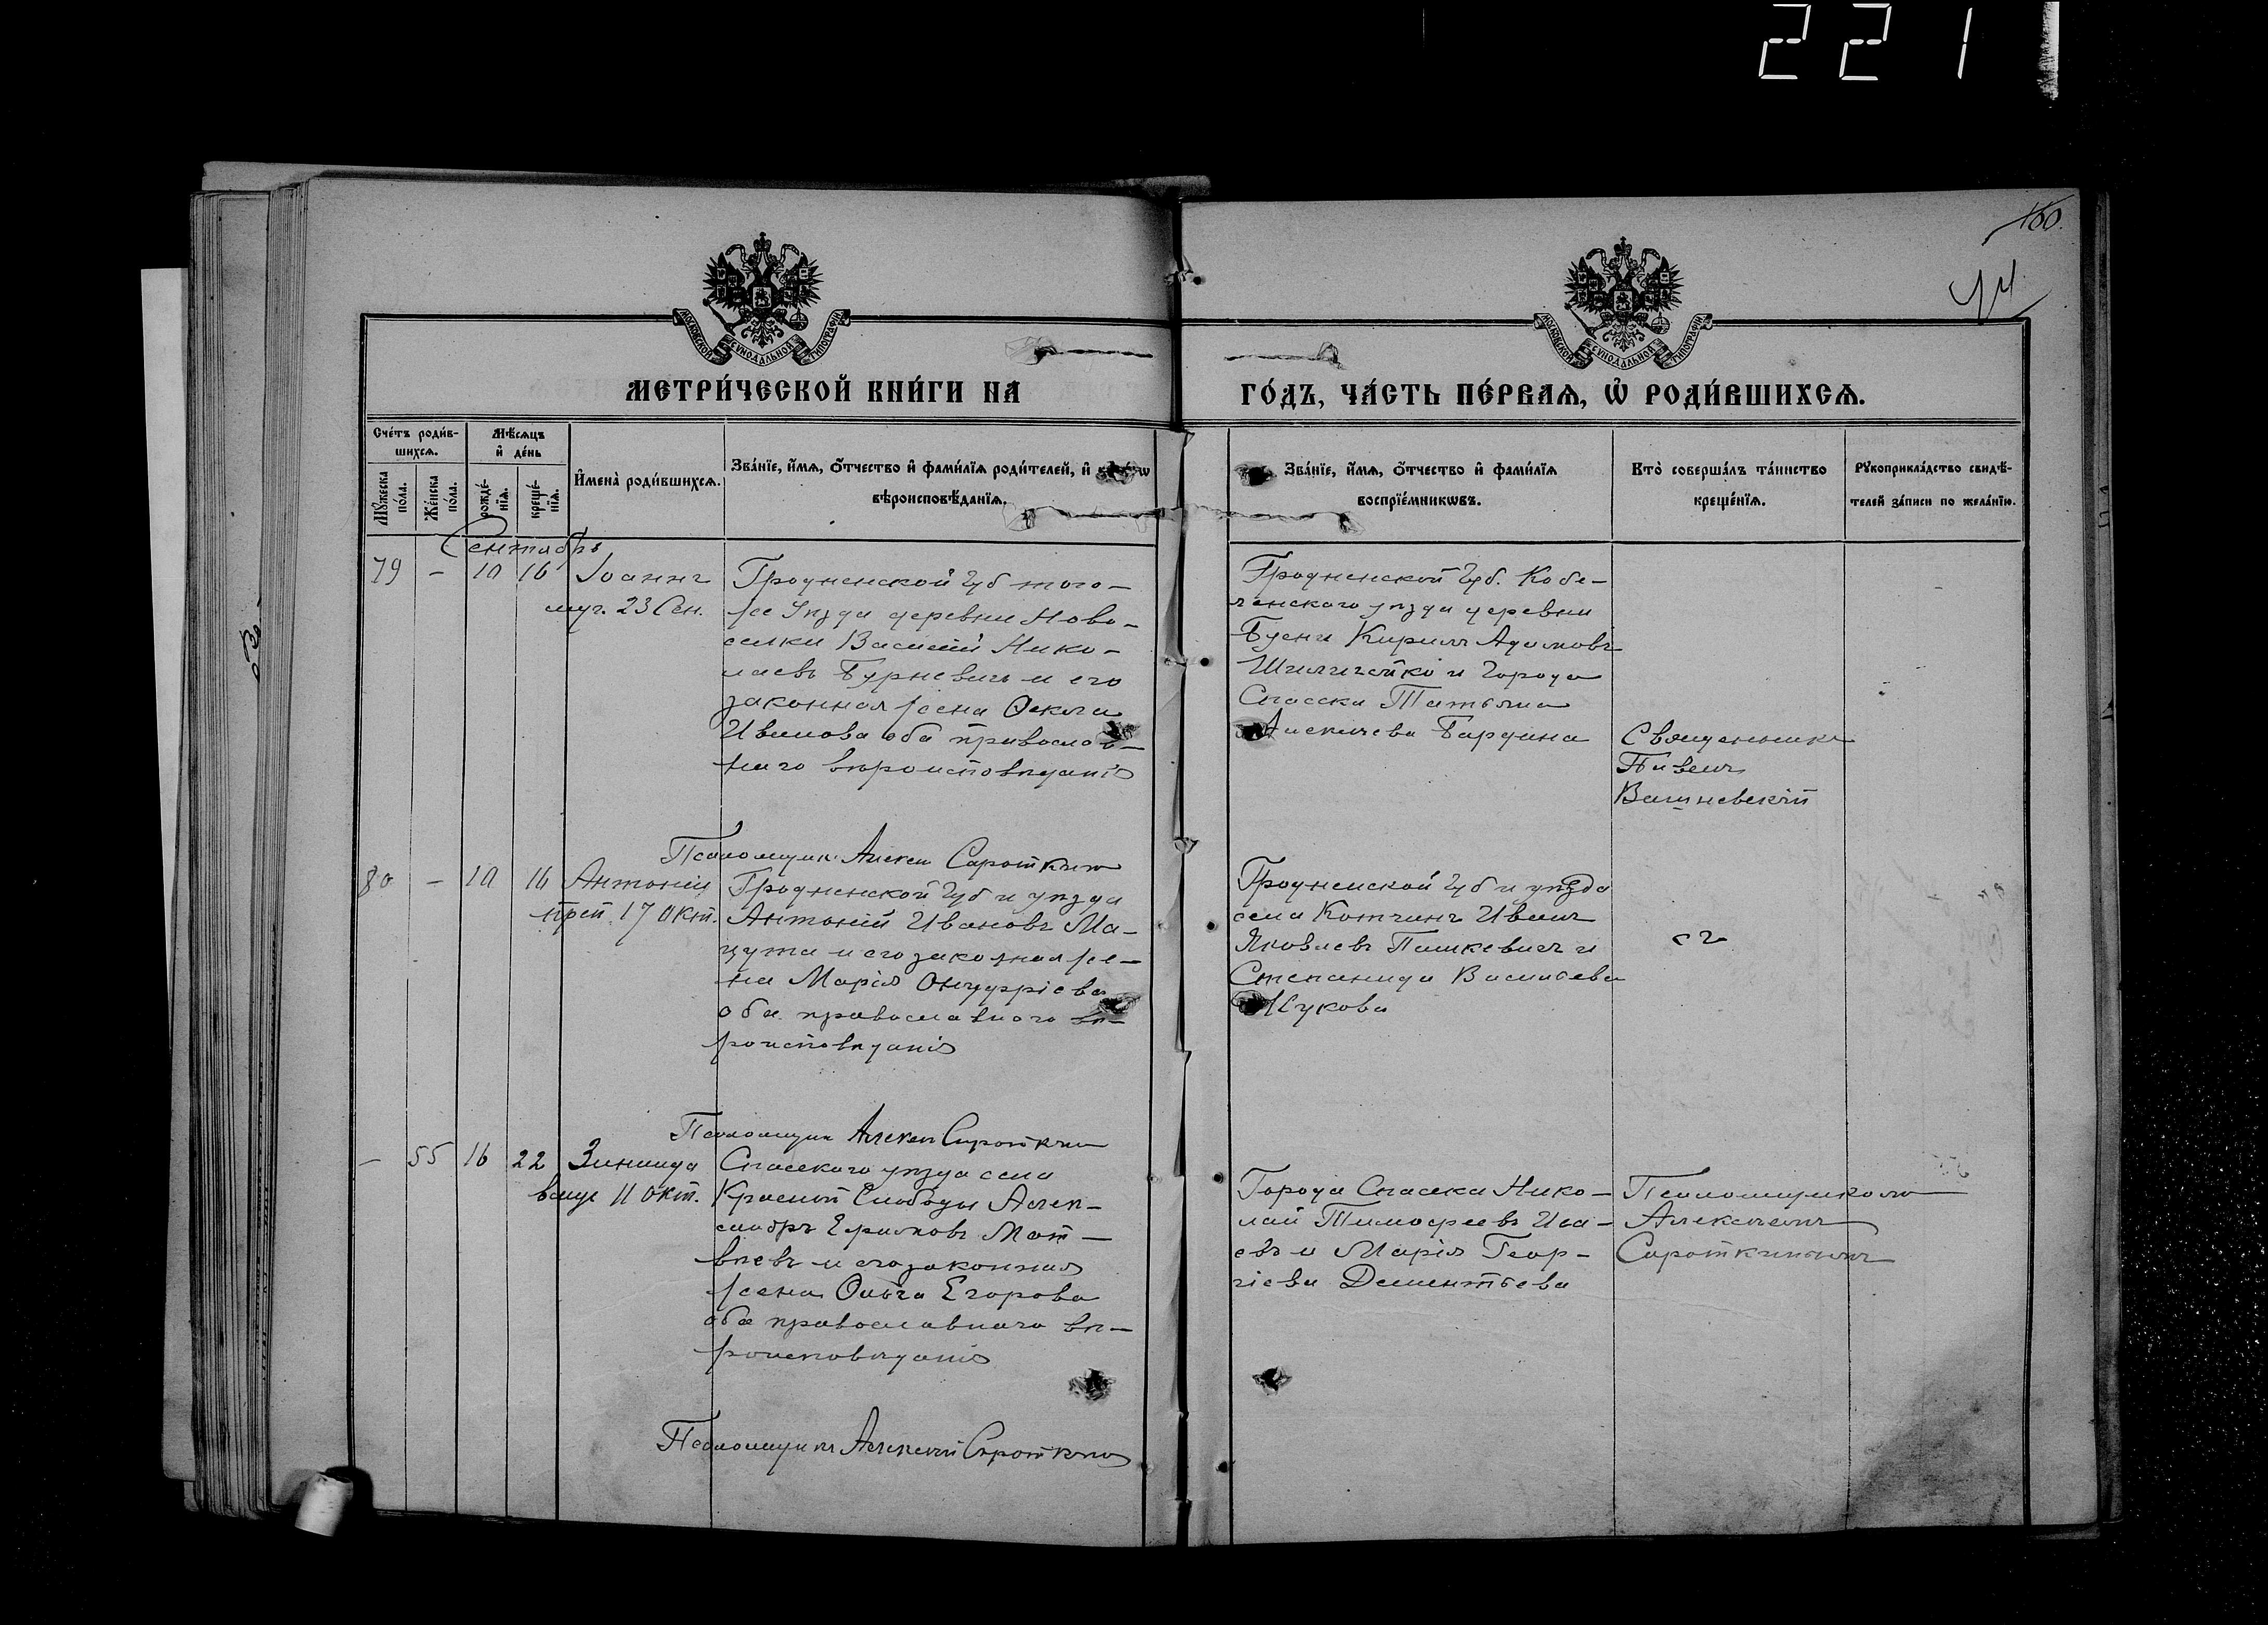 221
160.
МОСКОВСКОЙ СѴНОДАЛЬНОЙ ТИПОГРАФІИ
МОСКОВСКОЙ СѴНОДАЛЬНОЙ ТИПОГРАФІИ
МЕТРИ́ЧЕСКОЙ КНИ́ГИ НА
ГО́ДЪ, ЧА́СТЬ ПЕ́РВАѦ, Ѡ҆ РОДИ́ВШИХСѦ.
Сче́тъ роди́в-
шихсѧ.
Мѣ́сѧцъ
и҆ де́нь
Мꙋ́жеска по́ла.
Же́нска по́ла.
рожде́-
нїѧ.
креще́-
нїѧ.
И҆мена̀ роди́вшихсѧ.
Зва́нїе, и҆́мѧ, ѻ҆́тчество и҆ фами́лїѧ роди́телей, и҆
вѣроисповѣ́данїѧ.
Зва́нїе, и҆́мѧ, ѻ҆́тчество и҆ фами́лїѧ
воспрїе́мникѡвъ.
Кто̀ соверша́лъ та́инство
креще́нїѧ.
Рꙋкоприкла́дство свидѣ́-
телей за́писи по жела́нїю.
Сентябрь
79 – 10 16 Іоаннъ
муч. 23 Сен.
Гродненской губ того-
же Уѣзда деревни Ново-
селки Василій Нико-
лаевъ Бурневичъ и его
законная жена Ѳекла
Иванова оба православ-
наго вѣроисповѣданія
Гродненской губ. Кобе-
ренского уѣзда деревни
Кириллъ Адамовъ
и города
Спасска Татьяна
Алексѣева Бардина
Священникъ
Павелъ
Вишневскій
Псаломщик Алексѣй Сироткинъ
80 – 10 16 Антоній
преп. 17 Окт.
Гродненской губ и уѣзда
Антоній Ивановъ Ма-
цута и его законная же-
на Марія Онуфріева
оба православного вѣ-
роисповѣданія
Гродненской губ и уѣзда
села Котчинъ Иванъ
Яковлевъ Пашкевичъ и
Степанида Васильева
Жукова
Псаломщик Алексѣй Сироткинъ
– 55 16 22 Зинаида
11 Окт.
Спасского уѣзда села
Красной Слободы Алек-
сандръ Ермолаевъ Мат-
вѣевъ и его законная
жена Ольга Егорова
оба православнаго вѣ-
роисповѣданія
Города Спасска Нико-
лай Тимофеевъ Иса-
евъ и Марія Геор-
гіева Дементьева
Псаломщикомъ
Алексѣемъ
Сироткинымъ
Псаломщикъ Алексѣй Сироткинъ